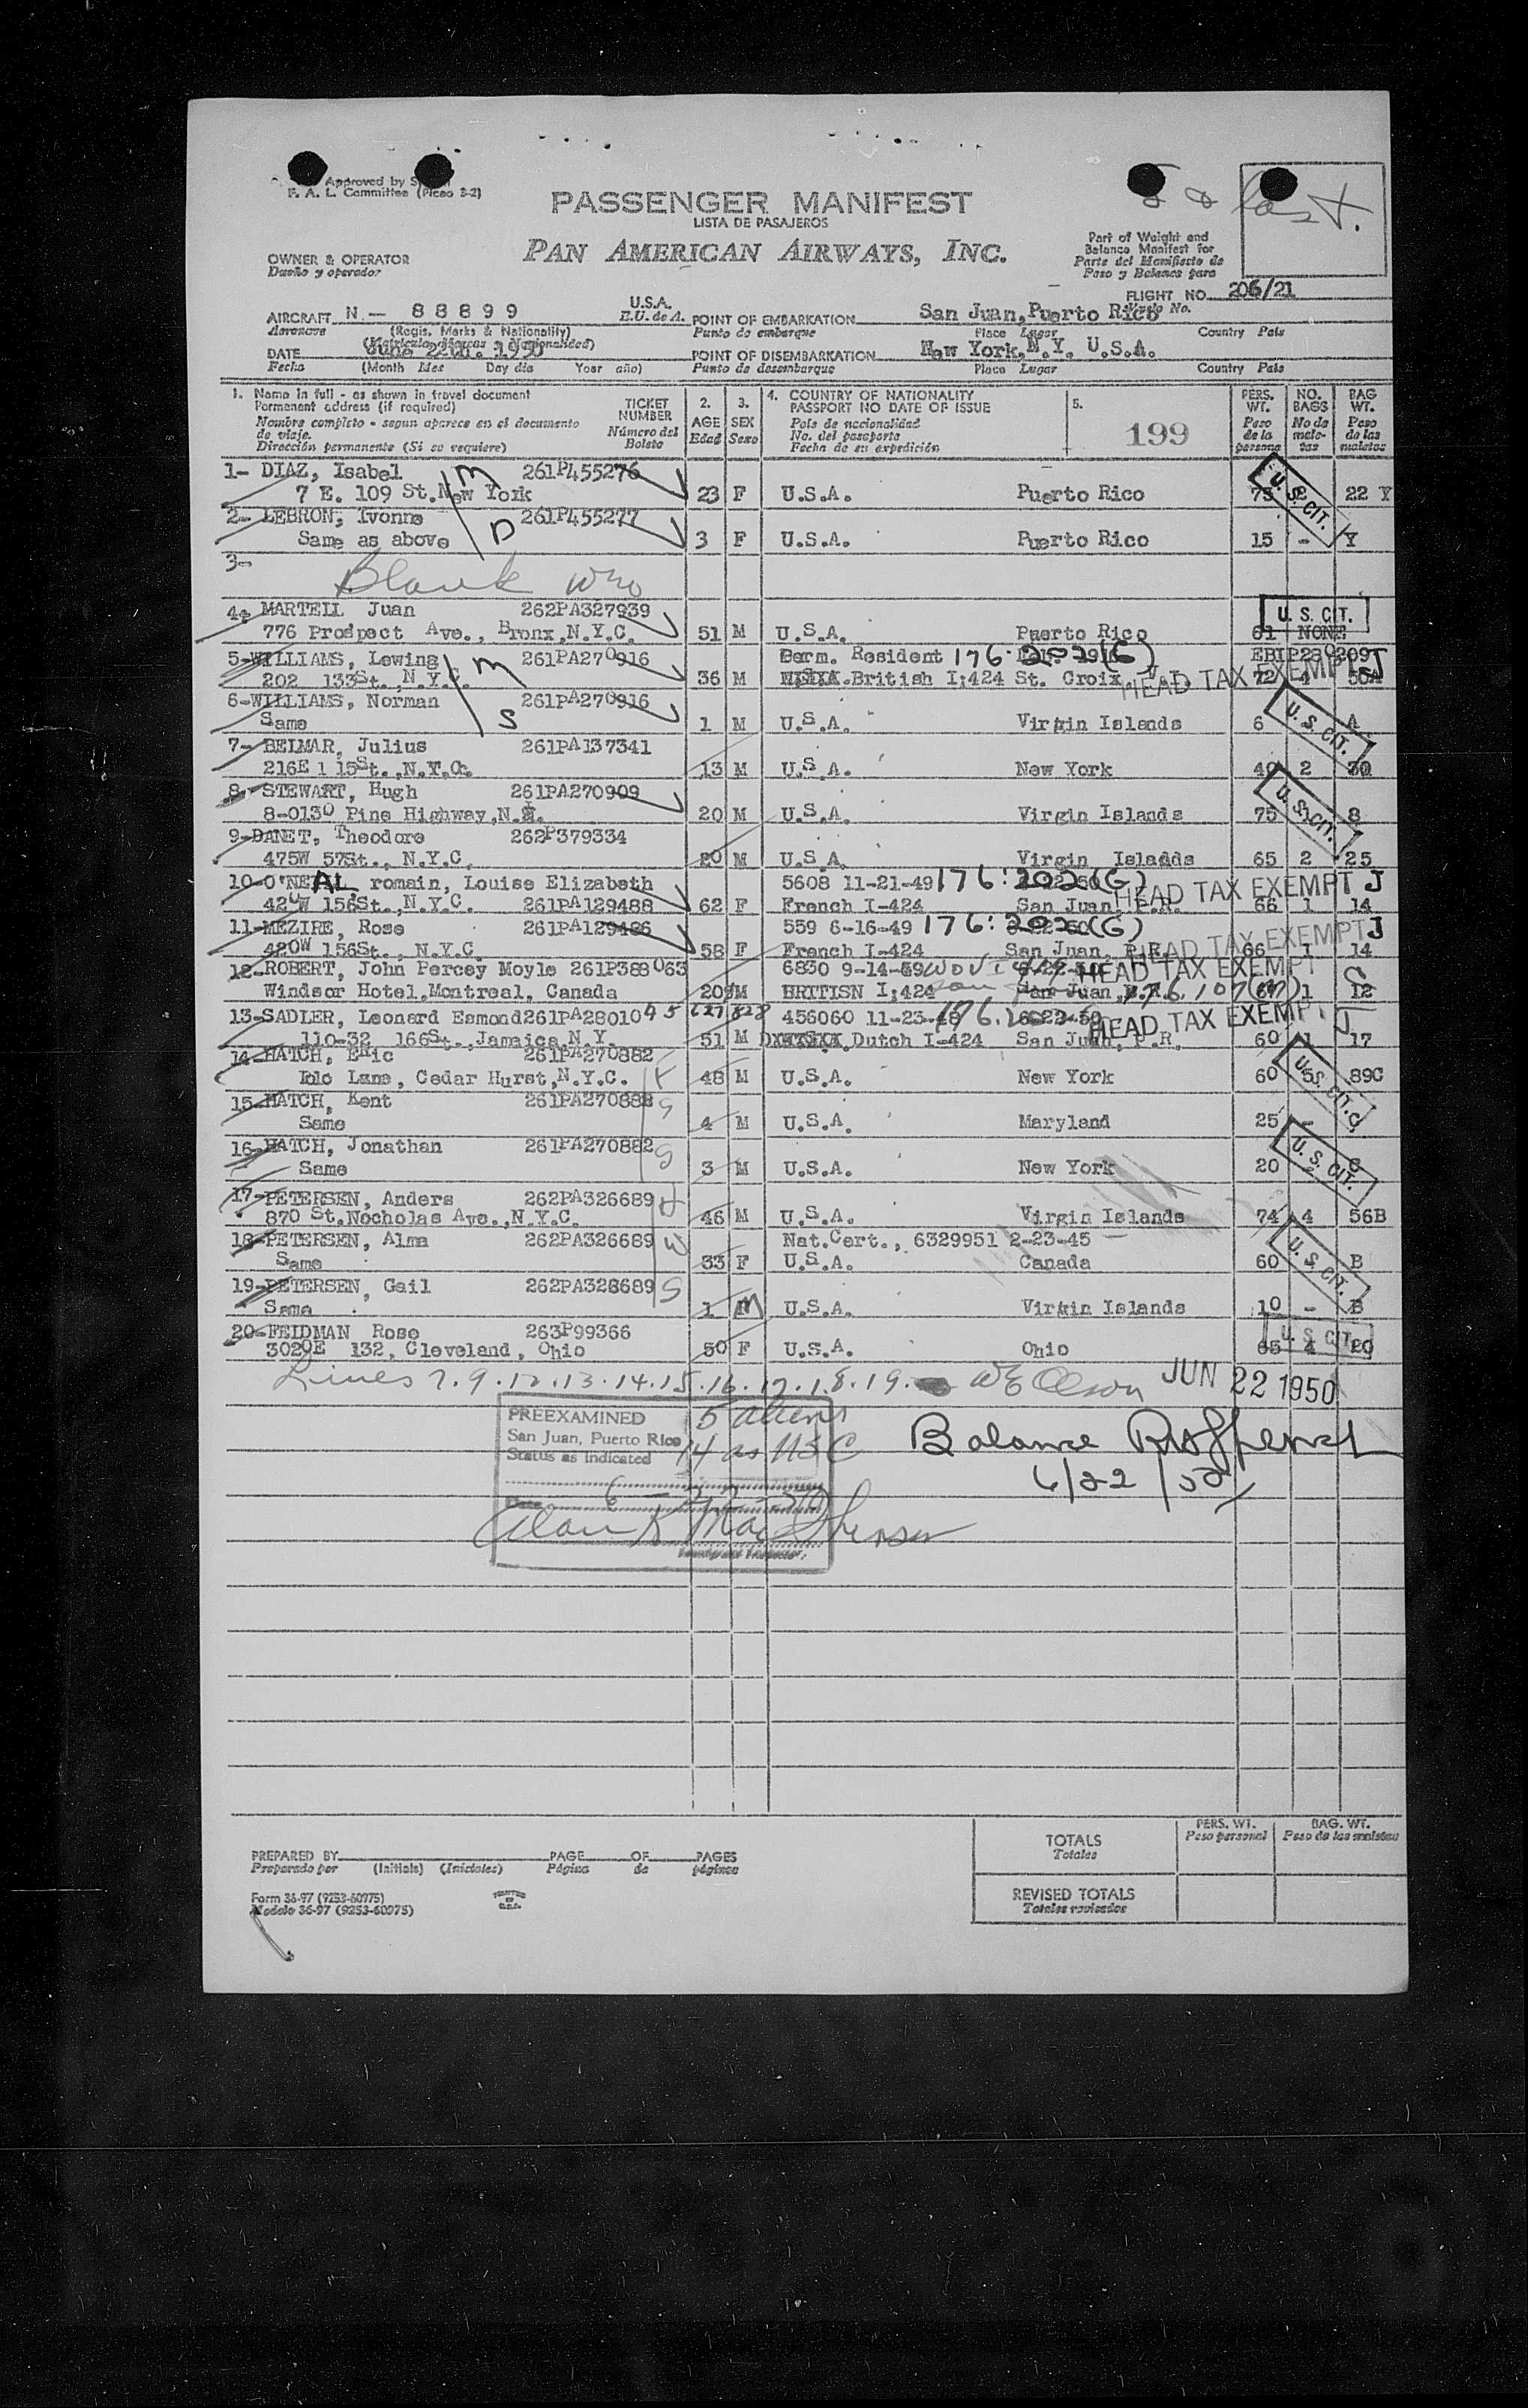 Approved by S
F. A. L. Committee (Picao 2-2)
PASSENGER MANIFEST
LISTA DE PASAJEROS
PAN AMERICAN AIRWAYS, INC.
& last.
Part of Weight and
Balance Manifest for
Parte del Manifiesto de
Peso y Balance para
OWNER & OPERATOR
Dueño y operador
FLIGHT NO. 206/21
Vuelo No.
AIRCRAFT N — 88899 U.S.A.
Aeronave (Regis. Marks & Nationality) E.U. de A.
(Matriculas Marcas y Nacionalidad)
POINT OF EMBARKATION San Juan, Puerto Rico
Punto de embarque Place Lugar Country Pais
DATE June 22th. 1950
Fecha (Month Mes Day dia Year año)
POINT OF DISEMBARKATION New York, N.Y. U.S.A.
Punto de desembarque Place Lugar Country Pais
1. Name in full - as shown in travel document
Permanent address (if required)
Nombre completo - segun aparece en el documento
de viaje.
Dirección permanente (Si se requiere)
TICKET
NUMBER
Número del
Boleto
2.
AGE
Edad
3.
SEX
Sexo
4. COUNTRY OF NATIONALITY
PASSPORT NO DATE OF ISSUE
Pais de nacionalidad
No. del pasaporte
Fecha de su expedición
5.
199
PERS.
WT.
Peso
de la
persona
NO.
BAGS
No de
male-
tas
BAG
WT.
Peso
de las
maletas
1- DIAZ, Isabel M 261P455276
7 E. 109 St. New York 23 F U.S.A. Puerto Rico 75 2 22 Y
U. S. CIT.
2- LEBRON, Ivonne D 261P455277
Same as above 3 F U.S.A. Puerto Rico 15 - Y
3-
Blank
4- MARTELL Juan 262PA327939
776 Prospect Ave., Bronx,N.Y.C. 51 M U.S.A. Puerto Rico 61 NONE
U. S. CIT.
5-WILLIAMS, Lewing M 261PA270916 Perm. Resident 176.202(G)
202 133St., N.Y.C. 36 M British I;424 St. Croix 72 4 50A
HEAD TAX EXEMPT J
6-WILLIAMS, Norman S 261PA270916
Same 1 M U.S.A. Virgin Islands 6 A
U. S. CIT.
7- BELMAR, Julius 261PA137341
216E 115St.,N.Y.C. 13 M U.S.A. New York 40 2 30
8- STEWART, Hugh 261PA270909
8-0130 Pine Highway,N. 20 M U.S.A. Virgin Islands 75 8
U. S. CIT.
9-DANET, Theodore 262P379334
475W 57St., N.Y.C. 20 M U.S.A. Virgin Isladds 65 2 25
10-O'NEAL romain, Louise Elizabeth 5608 11-21-49 176:202(G)
420W 156St.,N.Y.C. 261PA129488 62 F French I-424 San Juan, P.R. 66 1 14
HEAD TAX EXEMPT J
11-MEZIRE, Rose 261PA129486 559 6-16-49 176:202(G)
420W 156St., N.Y.C. 58 F French I-424 San Juan, P.R. 66 1 14
HEAD TAX EXEMPT J
12-ROBERT, John Percey Moyle 261P388063 6830 9-14-
Windsor Hotel,Montreal, Canada 20 M BRITISN I;424 San Juan, P.R. 176.107 1 12
HEAD TAX EXEMPT
13-SADLER, Leonard Esmond 261PA28010 456060 11-23-48
110-32 166St.,Jamaica,N.Y. 51 M Dutch I-424 San Juan, P.R. 60 1 17
HEAD TAX EXEMPT J
14-HATCH, Eric 261PA270882
Lane, Cedar Hurst,N.Y.C. 48 M U.S.A. New York 60 5 89C
U. S. CIT.
15-HATCH, Kent 261PA270882 S
Same 4 M U.S.A. Maryland 25 - C
16-HATCH, Jonathan 261PA270882 S
Same 3 M U.S.A. New York 20 - C
U. S. CIT.
17-PETERSEN, Anders 262PA326689 H
870 St.Nocholas Ave.,N.Y.C. 46 M U.S.A. Virgin Islands 74 4 56B
18-PETERSEN, Alma 262PA326689 W Nat.Cert., 6329951 2-23-45
Same 33 F U.S.A. Canada 60 - B
U. S. CIT.
19-PETERSEN, Gail 262PA326689 S
Same 1 M U.S.A. Virgin Islands 10 - B
20-FEIDMAN Rose 263P99366
3029E 132, Cleveland, Ohio 50 F U.S.A. Ohio 65 4 20
U. S. CIT.
Lines 7.9.12.13.14.15.16.17.18.19. W E Olson JUN 22 1950
PREEXAMINED 5 aliens
San Juan, Puerto Rico 14 as USC
Status as indicated
Date
Immigrant Inspector.
Balance
6/22/50
PREPARED BY PAGE OF PAGES
Preparado por (Initials) (Iniciales) Página de páginas
TOTALS
Totales
PERS. WT.
Peso personal
BAG. WT.
Peso de las maletas
REVISED TOTALS
Totales revisados
Form 36-97 (9253-60975)
Modelo 36-97 (9253-60975)
PRINTED
IN
U.S.A.